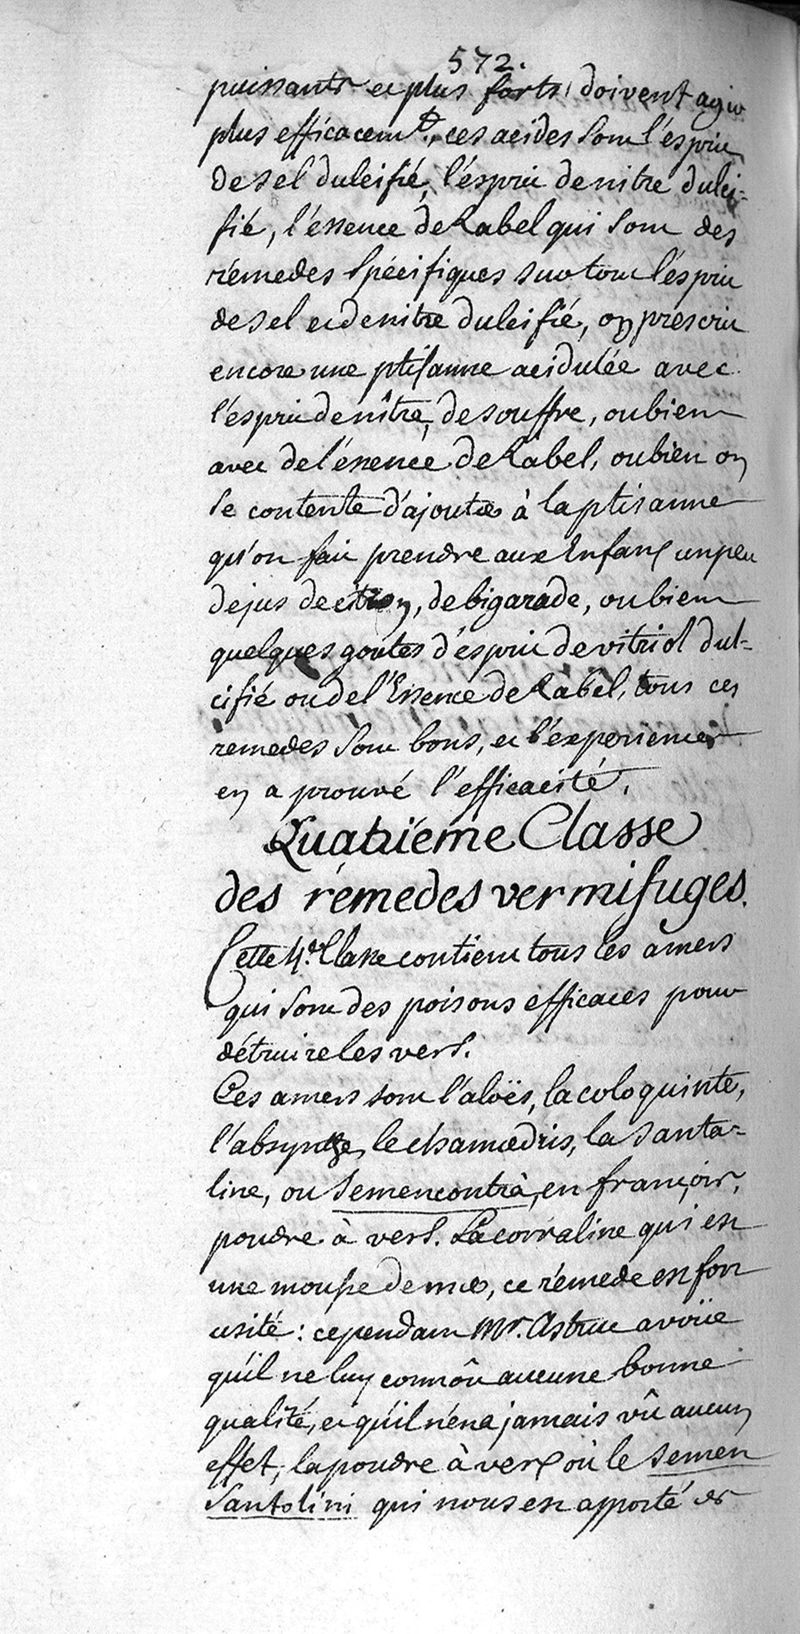 572.
puissants et plus forts, doivent agir
plus efficacemt., ces acides sont l'esprit
de sel dulcifié, l'esprit de nitre dulci-
fié, l'éssence de Rabel qui sont des
rémedes spécifiques surtout l'ésprit
de sel et de nitre dulcifié, on prescrit
encore une ptisanne acidulée avec
l'esprit de nître, de souffre, ou bien
avec de l'éssence de Rabel, ou bien on
se contente d'ajouter à la ptisanne
qu'on fait prendre aux Enfans un peu
de jus de citron, de bigarade, ou bien
quelques goutes d'ésprit de vitriol dul-
cifié ou de l'Essence de Rabel, tous ces
remedes sont bons, et l'éxperience
en a prouvé l'efficacité.
Quatriéme Classe
des rémedes vermifuges.
Cette 4e. Classe contient tous les amers
qui sont des poisons efficaces pour
détruire les vers.
Ces amers sont l'aloës, la coloquinte,
l'absynthe, le chamœdris, la santo-
line, ou semencontrà, en françois,
poudre à vers. La corraline qui est
une mousse de mer, ce rémede est fort
usité: cependant Mr. Astruc avoüe
qu'il ne luy connôit aucune bonne
qualité, et qu'il n'en a jamais vû aucun
effet, la poudre à vers où le semen
Santolini qui nous est apporté de